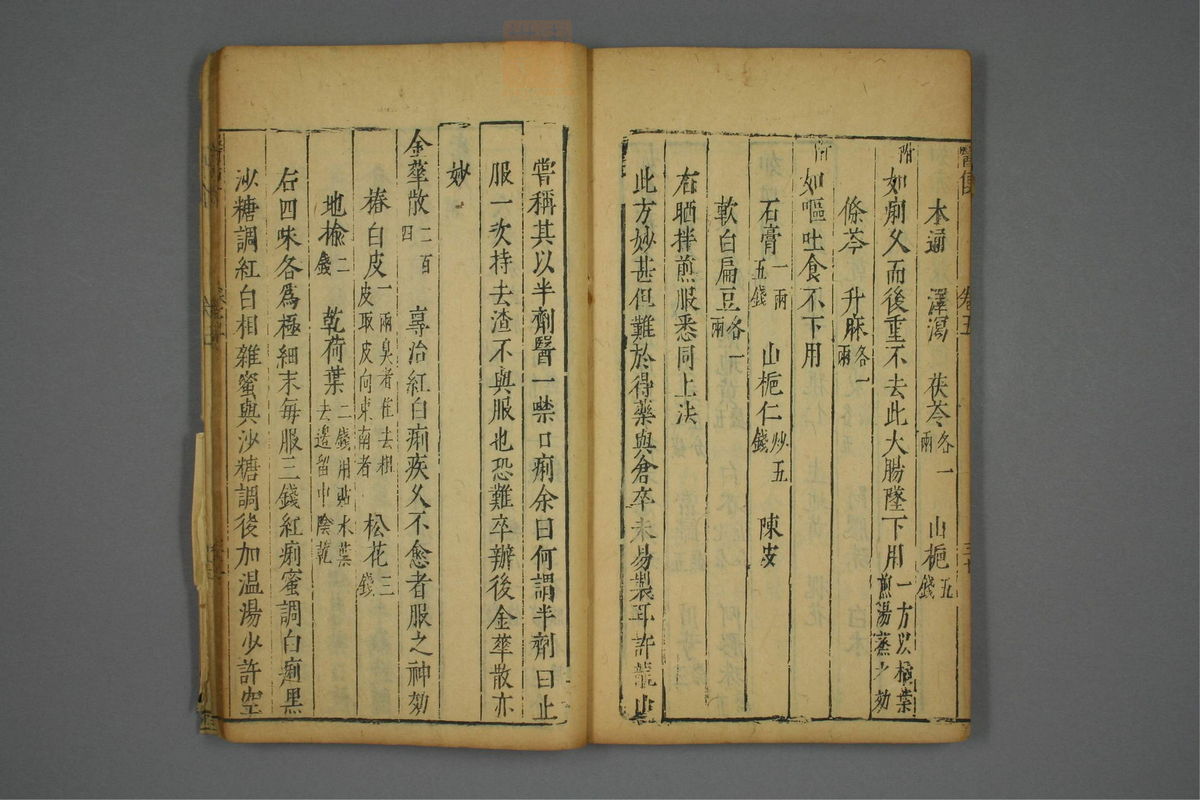 醫便 卷五 三十
木通 澤瀉 茯苓各一兩 山梔五錢
附如痢久而後重不去此大腸墜下用一方以樗葉煎湯薰之効
條芩 升麻各一兩
附如嘔吐食不下用
石膏一兩五錢 山梔仁炒五錢 陳皮
軟白扁豆各一兩
右晒拌煎服悉同上法
此方妙甚但難於得藥與倉卒未易製耳許龍山
嘗稱其以半劑醫一噤口痢余曰何謂半劑曰止
服一次持去渣不與服也恐難卒辦後金華散亦
妙
金華散二百四 專治紅白痢疾久不愈者服之神効
椿白皮一兩臭者佳去粗皮取皮向東南者 松花三錢
地榆二錢 乾荷葉二錢用貼水葉去邊留中陰乾
右四味各為極細末每服三錢紅痢蜜調白痢黑
沙糖調紅白相雜蜜與沙糖調後加温湯少許空